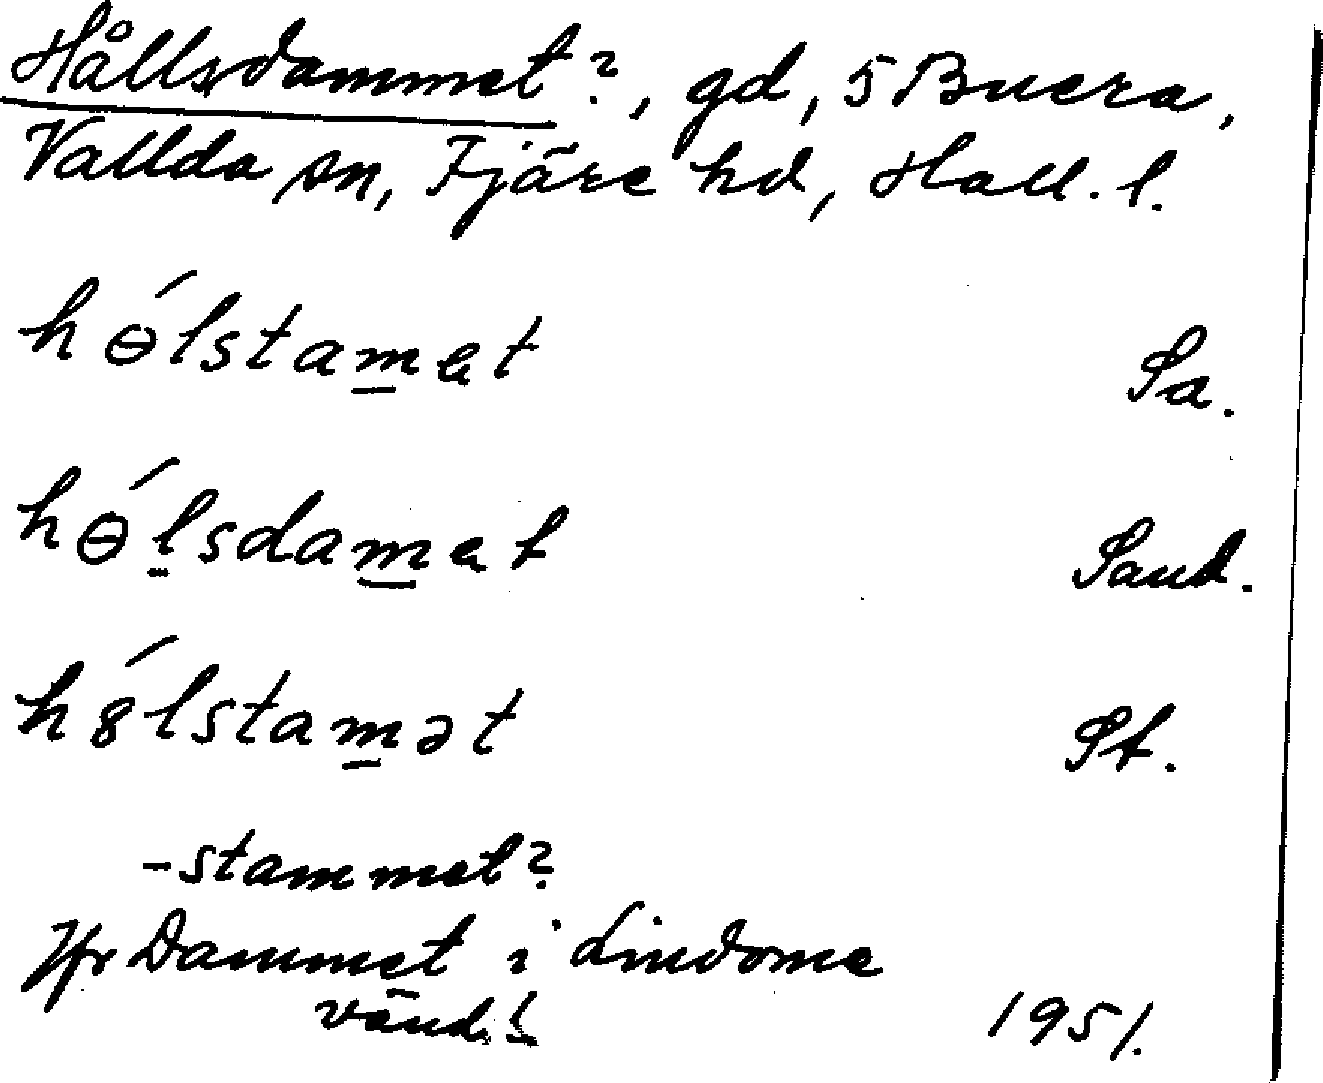 Hållsdammet?, gd, 5 Buera,
Vallda sn, Fjäre hd, Hall. l.
hɵ́lstam̲et Sa.
hɵ́l̤sdam̲et Sand.
h8́lstam̲ət St.
-stammet?
Jfr Dammet i Lindome
vänd! 1951.